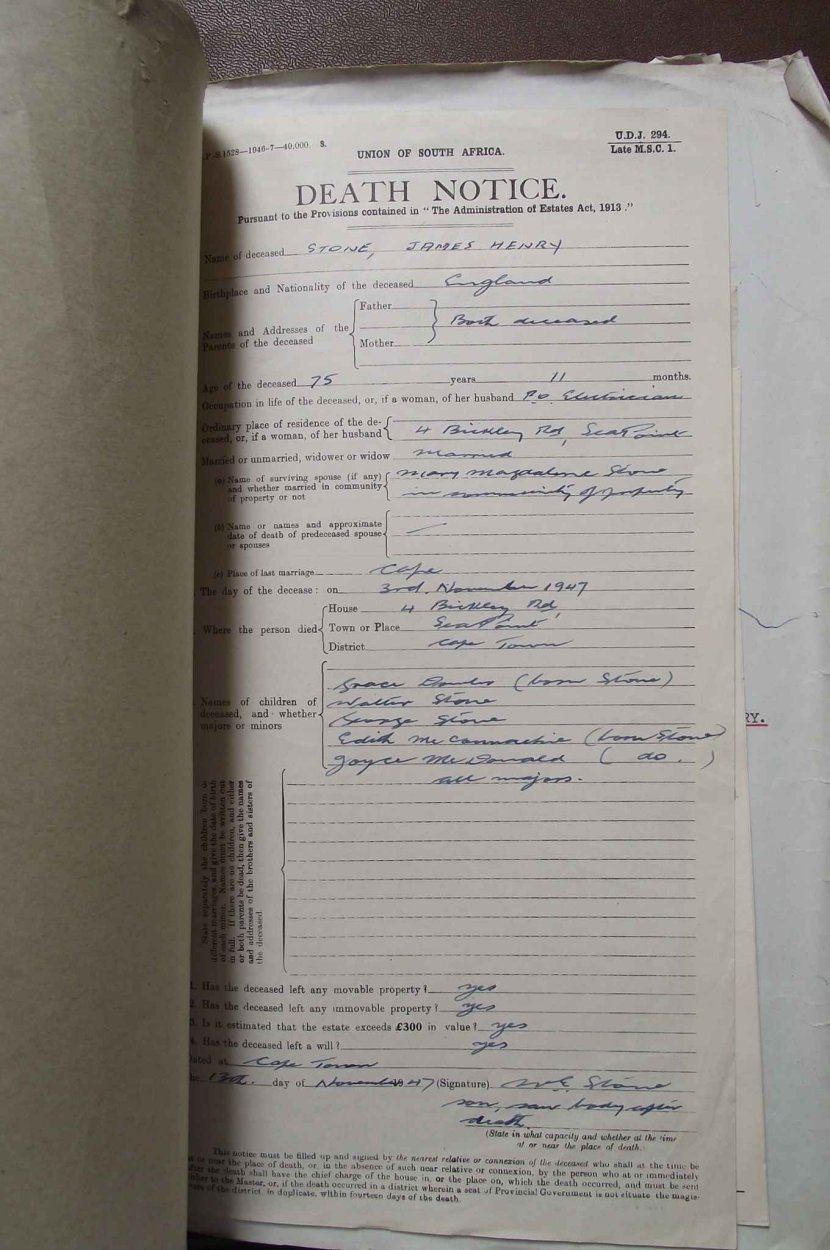 P.S.1528—1946-7—40,000 S.
U.D.J. 294.
Late M.S.C. 1.
UNION OF SOUTH AFRICA.
DEATH NOTICE.
Pursuant to the Provisions contained in "The Administration of Estates Act, 1913."
Name of deceased STONE, JAMES HENRY
Birthplace and Nationality of the deceased England
Names and Addresses of the Parents of the deceased
Father
Mother
Both deceased
Age of the deceased 75 years 11 months.
Occupation in life of the deceased, or, if a woman, of her husband P.O. Electrician
Ordinary place of residence of the de-
ceased, or, if a woman, of her husband 4 Bickley Rd, Sea Point
Married or unmarried, widower or widow married
(a) Name of surviving spouse (if any) Mary Magdalene Stone
and whether married in community in community of property
of property or not
(b) Name or names and approximate
date of death of predeceased spouse
or spouses
(c) Place of last marriage Cape
The day of the decease: on 3rd. November 1947
Where the person died
House 4 Bickley Rd,
Town or Place Sea Point
District Cape Town
Names of children of
deceased, and whether
majors or minors
Grace (born Stone)
Walter Stone
George Stone
Edith McConnachie (born Stone)
Joyce McDonald ( do. )
all majors.
State separately the children born of
different marriages, and give the date of birth
of each minor. Names must be written out
in full. If there are no children, and either
or both parents be dead, then give the names
and addresses of the brothers and sisters of
the deceased.
1. Has the deceased left any movable property? yes
2. Has the deceased left any immovable property? yes
3. Is it estimated that the estate exceeds £300 in value? yes
4. Has the deceased left a will? yes
Dated at Cape Town
the 13th. day of November 1947 (Signature) W.E. Stone
son, saw body after
death.
(State in what capacity and whether at the time
at or near the place of death.
This notice must be filled up and signed by the nearest relative or connexion of the deceased who shall at the time be
at or near the place of death, or, in the absence of such near relative or connexion, by the person who at or immediately
after the death shall have the chief charge of the house in, or the place on, which the death occurred, and must be sent
either to the Master, or, if the death occurred in a district wherein a seat of Provincial Government is not situate the magis-
of the district, in duplicate, within fourteen days of the death.
RY.